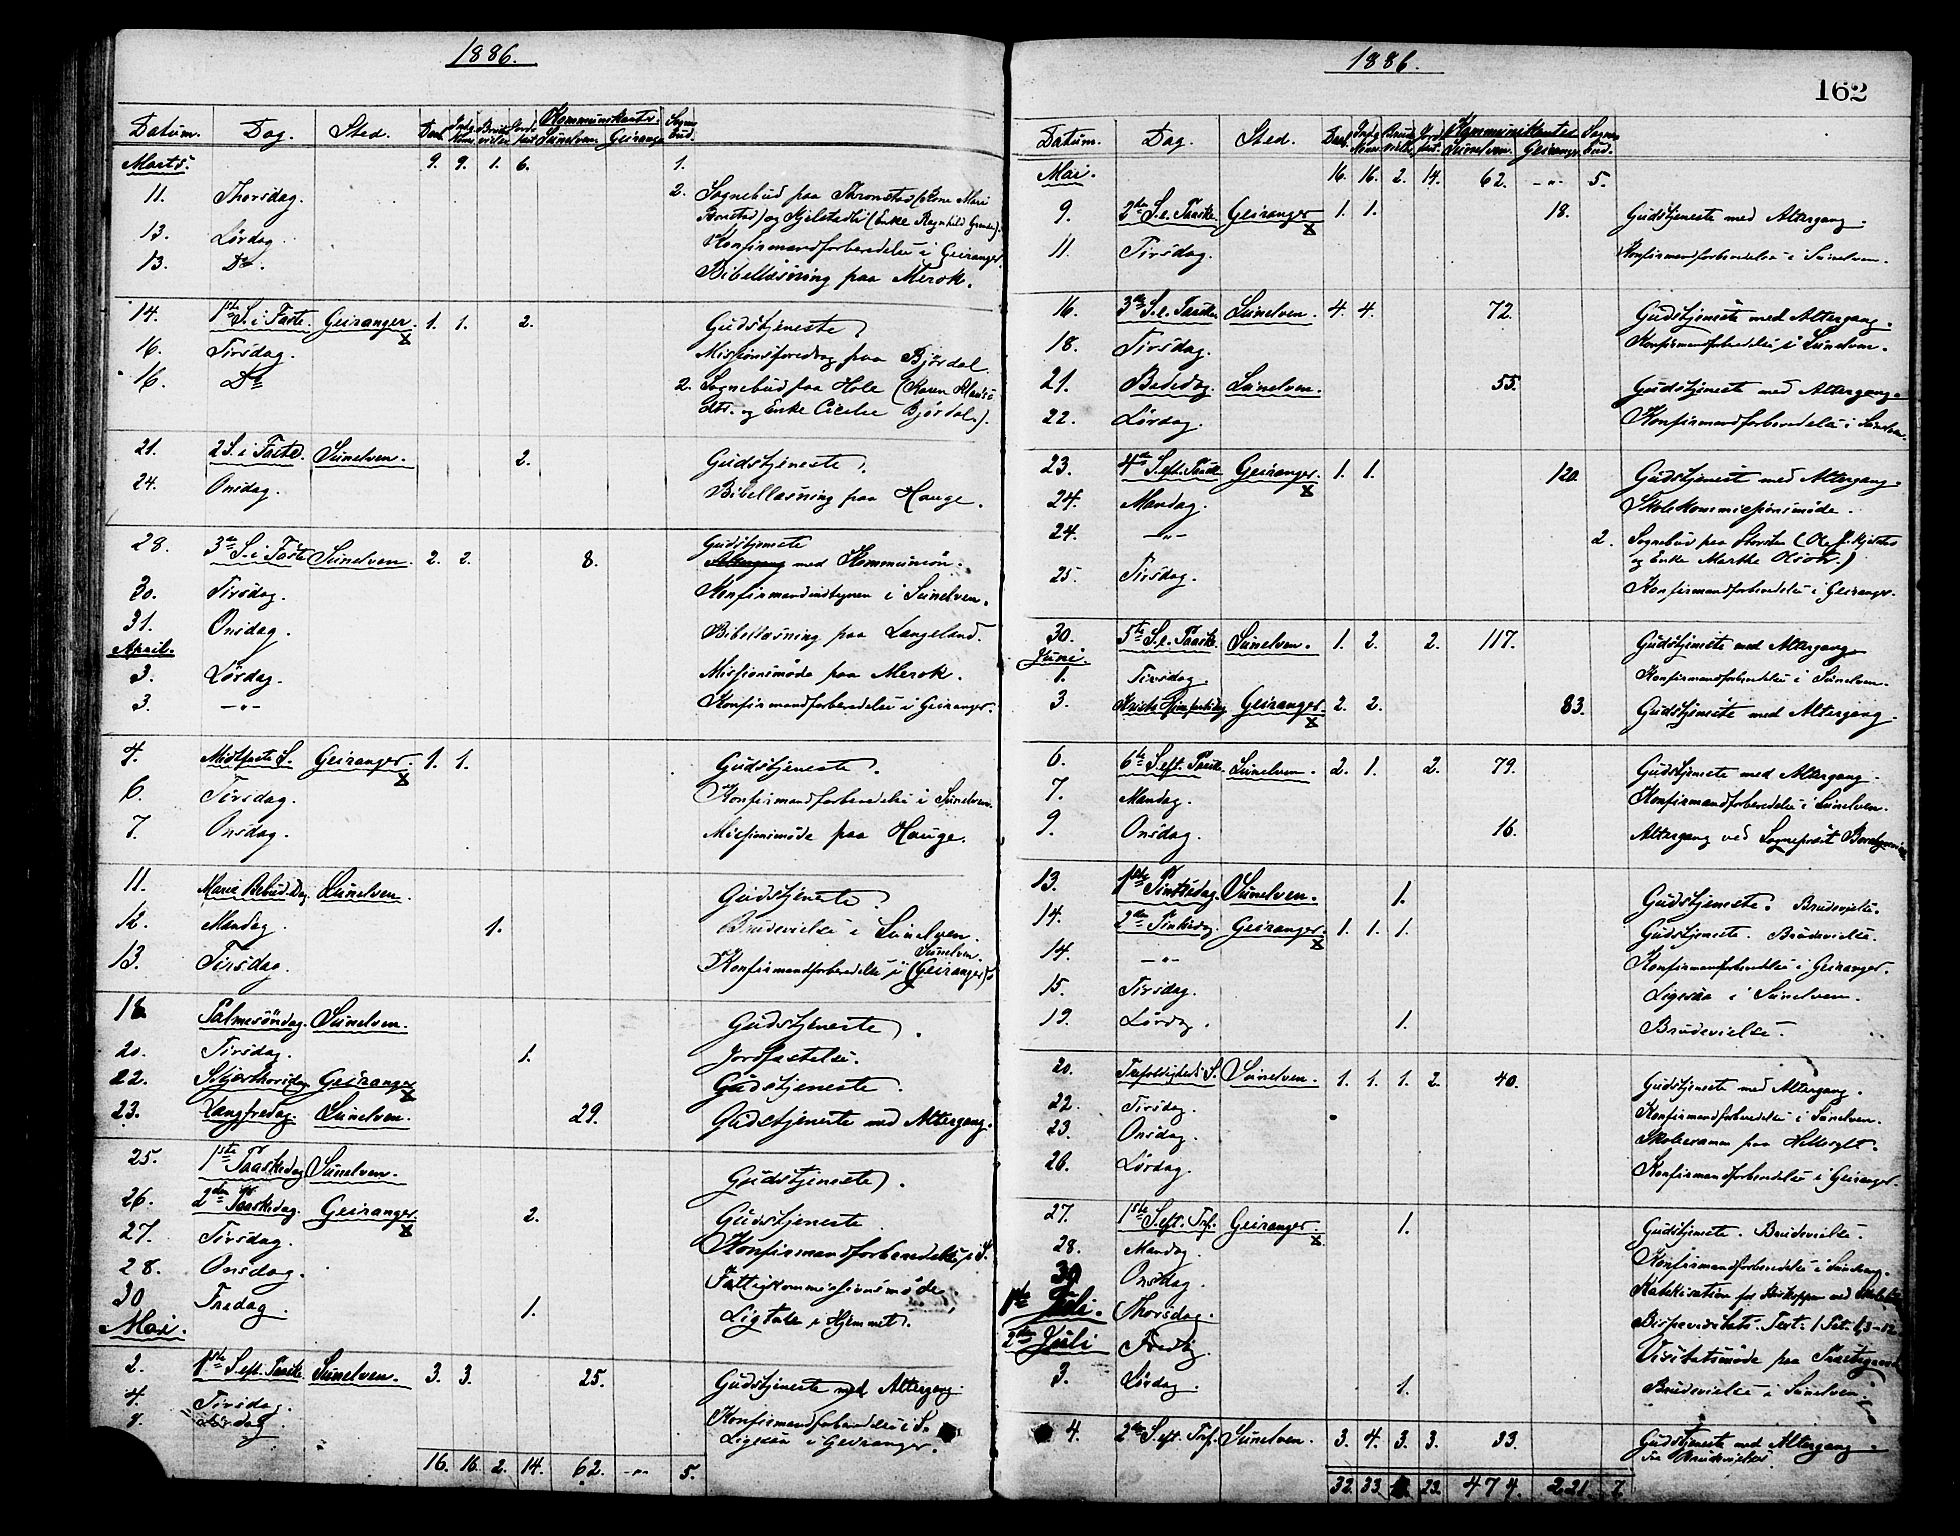 1886.
Datum. Dag. Sted. Daab Indg. Konf. Brude vielse Jord fæst. Kommunikanter Sunelven. Geiranger Sogne bud.
Marts. 9. 9. 1. 6. 1.
11. Thorsdag. 2. Sognebud paa
og (Enke
13. Lørdag. Konfirmandforberedelse i Geiranger.
13. Do. Bibellæsning paa Merok.
14. 1ste S. i Faste. Geiranger. X 1. 1. 2. Gudstjeneste.
16. Tirsdag. Missionsforedrag paa Bjørdal.
16. Do 2. Sognebud paa Hole (Karen
dtr. og Enke Cicelie Bjørdal.).
21. 2 S. i Faste. Sunelven. 2. Gudstjeneste.
24. Onsdag. Bibellæsning paa Hauge.
28. 3die S. i Faste Sunelven. 2. 2. 8. Gudstjeneste
Altergang med Kommunion.
30. Tirsdag. i Sunelven.
31. Onsdag. Bibellæsning paa Langeland.
April.
3. Lørdag. Missionsmøde paa Merok.
3. -"- Konfirmandforberedelse i Geiranger.
4. Midtfaste S. Geiranger. X 1. 1. Gudstjeneste.
6. Tirsdag. Konfirmandforberedelse i Sunelven.
7. Onsdag. Missionsmøde paa Hauge.
11. Maria Bebud. Dag. Sunelven. Gudstjeneste.
12. Mandag. 1. Brudevielse i Sunelven.
Sunelven.
13. Tirsdag. Konfirmandforberedelse i (Geiranger)
18 Palmesøndag. Sunelven. Gudstjeneste.
20. Tirsdag. 1. Jordfæstelse.
22. Skjærthorsdag Geiranger X Gudstjeneste.
23. Langfredag. Sunelven. 29. Gudstjeneste med Altergang.
25. 1ste Paaskedag Sunelven. Gudstjeneste.
26. 2den Paaskedag. Geiranger. X 2. Gudstjeneste
27. Tirsdag. Konfirmandforberedelse i S.
28. Onsdag. Fattigkommissionsmøde
30 Fredag. 1. Ligtale i Hjemmet.
Mai.
2. 1ste S. eft. Paaske. Sunelven. 3. 3. 25. Gudstjeneste med Altergang.
4. Tirsdag. Konfirmandforberedelse i S.
Lørdag. i Geiranger.
16. 16. 2. 14. 62. -"- 5.
1886.
162
Datum. Dag. Sted. Daab Indg. Konf. Brude vielse Jord fæst. Kommunikanter Sunelven. Geiranger. Sogne bud.
Mai. 16. 16. 2. 14. 62. -"- 5.
9. 2den S. e. Paaske. Geiranger X 1. 1. 18. Gudstjeneste med Altergang.
11. Tirsdag. Konfirmandforberedelse i Sunelven.
16. 3die S. e. Paaske. Sunelven. 4. 4. 72. Gudstjeneste med Altergang.
18. Tirsdag. Konfirmandforberedelse i Sunelven.
21. Bededag. Sunelven. 55. Gudstjeneste med Altergang.
22. Lørdag. Konfirmandforberedelse i Sunelven.
23. 4de S. eft. Paaske Geiranger. X 1. 1. 120. Gudstjeneste med Altergang.
24. Mandag. Skolekommissionsmøde.
24. -"- 2. Sognebud paa
og Enke Marthe
25. Tirsdag. Konfirmandforberedelse i Geiranger.
30. 5te S. e. Paaske. Sunelven. 1. 2. 2. 117. Gudstjeneste med Altergang.
Juni.
1. Tirsdag. Konfirmandforberedelse i Sunelven.
3. Kristi Himmelfartsdag Geiranger. X 2. 2. 83. Gudstjeneste med Altergang.
6. 6te S. eft. Paaske. Sunelven. 2. 1. 2. 79. Gudstjeneste med Altergang.
7. Mandag. Konfirmandforberedelse i Sunelven.
9. Onsdag. 16. Altergang ved Sogneprest
13. 1ste Pintsedag. Sunelven. 1. Gudstjeneste. Brudevielse.
14. 2den Pintsedag. Geiranger. X 1. 1. 1. Gudstjeneste. Brudevielse.
14. -"- Konfirmandforberedelse i Geiranger.
15. Tirsdag. i Sunelven.
19. Lørdag. 1. Brudevielse.
20. Trefoldigheds S. Sunelven. 1. 1. 1. 2. 40. Gudstjeneste med Altergang.
22. Tirsdag. Konfirmandforberedelse i Sunelven.
23. Onsdag. Skoleexamen paa Hellesylt.
26. Lørdag. Konfirmandforberedelse i Geiranger.
27. 1ste S. eft. Trf. Geiranger. X 1. Gudstjeneste. Brudevielse.
28. Mandag. Konfirmandforberedelse i Sunelven.
30 Onsdag. Katekisation for Biskoppen med
1ste Juli. Thorsdag. Bispevisitats. Text: 1 Pet. 1,3-12
2den Juli Fredag. Visitatsmøde paa
3. Lørdag. 1. Brudevielse i Sunelven.
4. 2den S. eft. Trf. Sunelven. 3. 4. 3. 3. 33. Gudstjeneste med Altergang.
Tre Brudevielser.
32. 33. 23. 474. 221. 7.